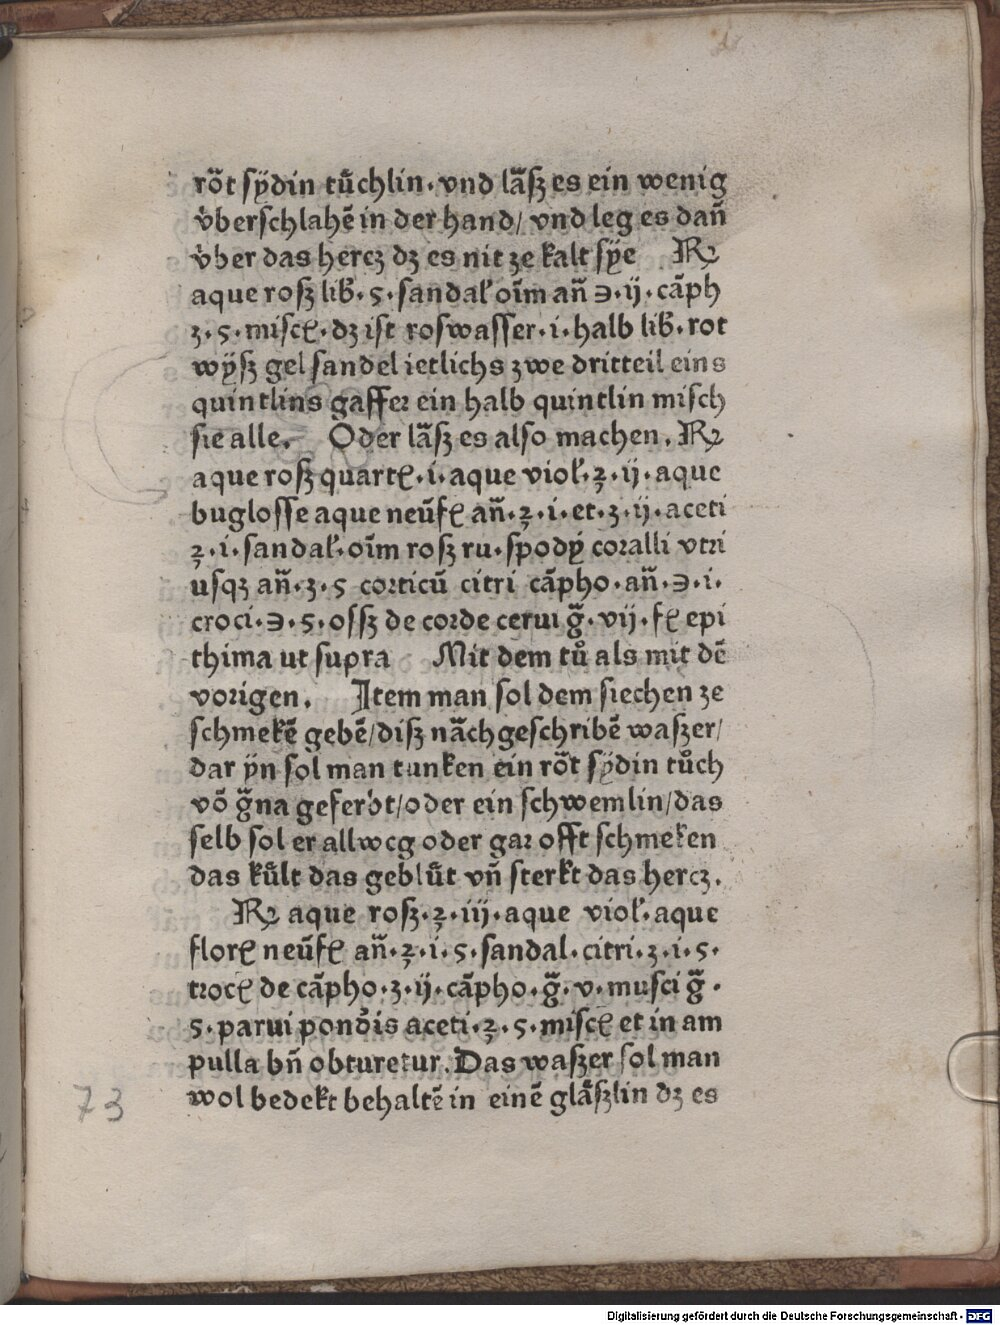 rõt sÿdin tůchlin · vnd lãſʒ es ein wenig
v̊berſchlahẽ in der hand / vnd leg es dañ
v̊ber das hercʒ dʒ es nit ʒe kalt ſÿe ℞
aque roſʒ lib̃ · ꝭ · ſandal̛ oĩm añ ℈ · ij · cãph
ʒ · ꝭ · miſcꝭ · dʒ iſt roſwaſſer · i · halb lib̃ · rot
wÿſʒ gel ſandel ietlichs ʒwe dritteil eins
quintlins gaffeꝛ ein halb quintlin miſch
ſie alle. Oder lãſʒ es alſo machen. ℞
aque roſʒ quartꝭ · i · aque viol̛ · ℥ · ij · aque
bugloſſe aque neũfꝭ añ · ℥ · i · et · ʒ · ij · aceti
℥ · i · ſandal̛ · oĩm roſʒ ru · ſpodÿ coꝛalli vtri
uſqʒ añ · ʒ · ꝭ coꝛticũ citri cãpho · añ · ℈ · i ·
croci · ℈ · ꝭ · oſſʒ de coꝛde cerui g̃ · vij · fꝭ epi
thima ut ſupra Mit dem tů als mit dẽ
voꝛigen. Item man ſol dem ſiechen ʒe
ſchmekẽ gebẽ / diſʒ nãchgeſchribẽ waſʒer /
dar ÿn ſol man tunken ein rõt ſÿdin tůch
võ g̃na geferbt / oder ein ſchwemlin / das
ſelb ſol er allweg oder gaꝛ offt ſchmeken
das kůlt das geblůt vñ ſterkt das hercʒ.
℞ aque roſʒ · ℥ · iij · aque viol̛ · aque
florꝭ neũfꝭ añ · ℥ · i · ꝭ · ſandal · citri · ʒ · i · ꝭ ·
trocꝭ de cãpho · ʒ · ij · cãpho · g̃ · v · muſci g̃ ·
ꝭ · parui pond̛is aceti · ℥ · ꝭ · miſcꝭ et in am
pulla bñ obturetur. Das waſʒer ſol man
wol bedekt behaltẽ in einẽ glãſʒlin dʒ es
73
Digitalisierung gefördert durch die Deutsche Forschungsgemeinschaft - DFG